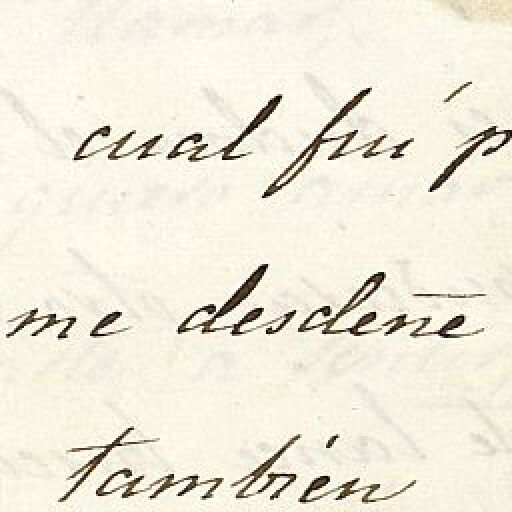 cual fuí p
me desdeñe
también